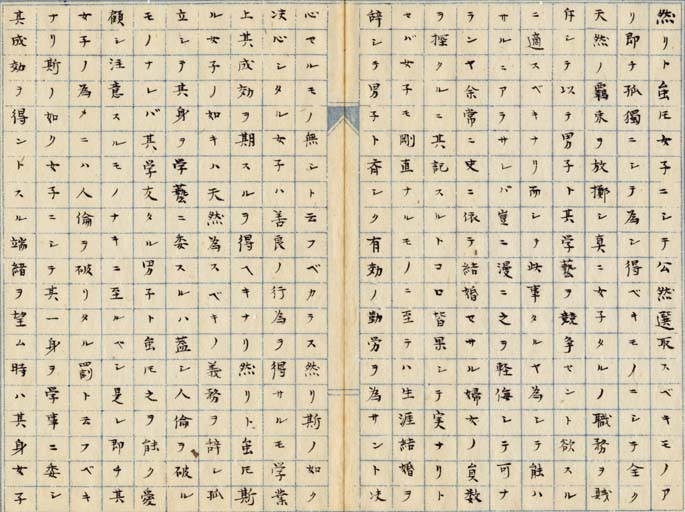 然リト虽𪜈女子ニシテ公然選取スベキモノア
リ即チ孤獨ニシテ為シ得ベキモノニシテ全ク
天然ノ羈束ヲ放擲シ真ニ女子タルノ職務ヲ賤
斥シテ以テ男子ト其学藝ヲ競争セント欲スル
ニ適スベキナリ而シテ此事タルヤ為シテ能ハ
サルニアラサレバ豈ニ漫ニ之ヲ軽侮シテ可ナ
ランヤ余常ニ史ニ依テ結婚セサル婦女ノ員数
ヲ探クルニ其記スルトコロ皆果シテ実ナリト
セバ女子モ剛直ナルモノニ至テハ生涯結婚ヲ
辞シテ男子ト斉シク有効ノ勤労ヲ為サント决
心セルモノ無シト云フベカラス然リ斯ノ如ク
决心シタル女子ハ善良ノ行為ヲ得サルモ学業
上其成効ヲ期スルヲ得ヘキナリ然リト虽𪜈斯
ル女子ノ如キハ天然為スベキノ義務ヲ辞シ孤
立シテ其身ヲ学藝ニ委スルハ蓋シ人倫ヲ破ル
モノナレバ其学友タル男子ト虽𪜈之ヲ能ク愛
顧シ注意スルモノナキニ至ルヘシ是レ即チ其
女子ノ為メニハ人倫ヲ破リタル罰トスフベキ
ナリ斯ノ如ク女子ニシテ其一身ヲ学事ニ委シ
其成効ヲ得ントスル端緒ヲ望ム時ハ其身女子